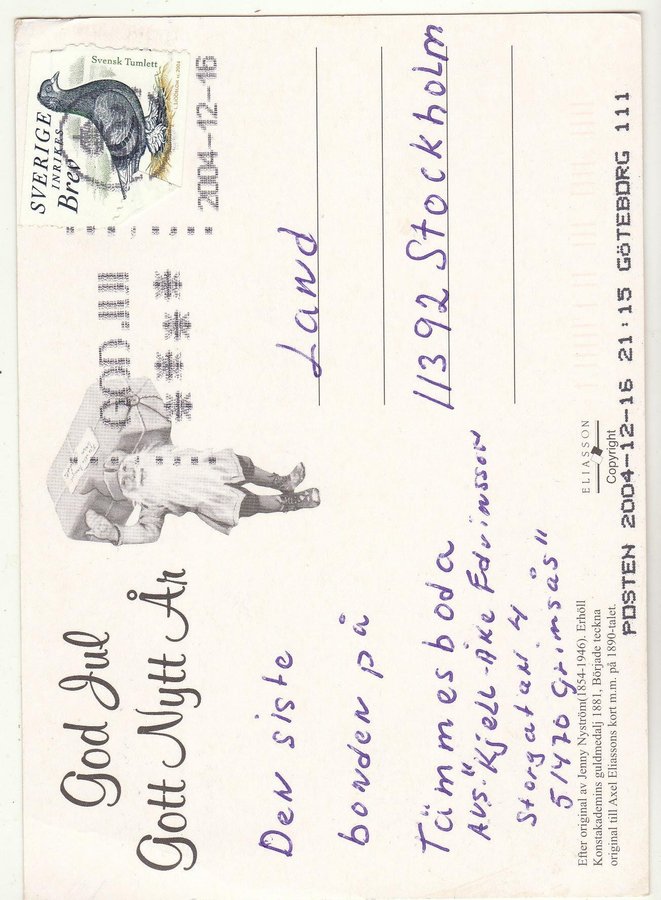 God Jul
Gott Nytt År
Den siste
bonden på
Tämmesboda
Avs. Kjell-Åke Edvinsson
Storgatan 4
51470 Grimsås"
Efter original av Jenny Nyström(1854-1946). Erhöll
Konstakademins guldmedalj 1881, Började teckna
original till Axel Eliassons kort m.m. på 1890-talet.
ELIASSON
Copyright
SVERIGE
INRIKES
Brev
Svensk Tumlett
2004-12-16
GOD JUL
Land
11392 Stockholm
POSTEN 2004-12-16 21:15 GÖTEBORG 111